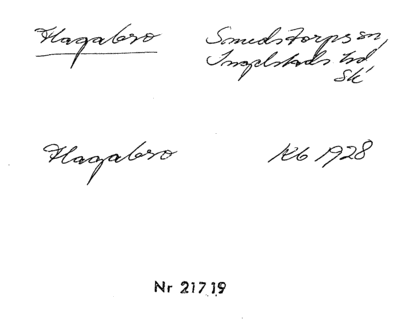 Hagabro Smedstorps sn,
Ingelstads hd
Sk
Hagabro Kb 1928
Nr 21719